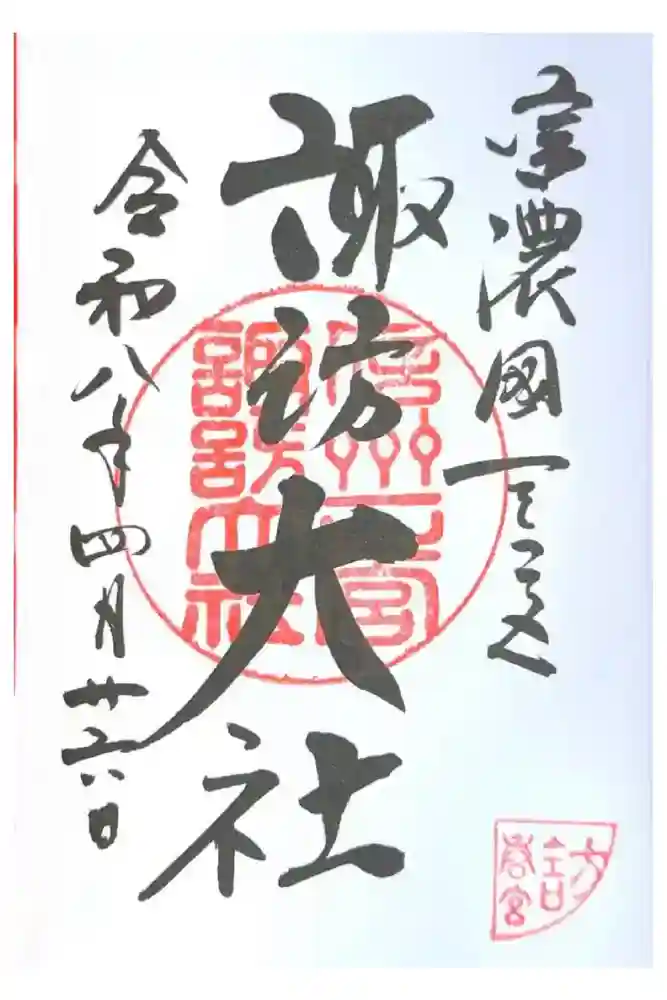 信濃國一之宮
諏訪大社
令和八年四月廿六日
信州一宮
諏訪大社
訪
春宮